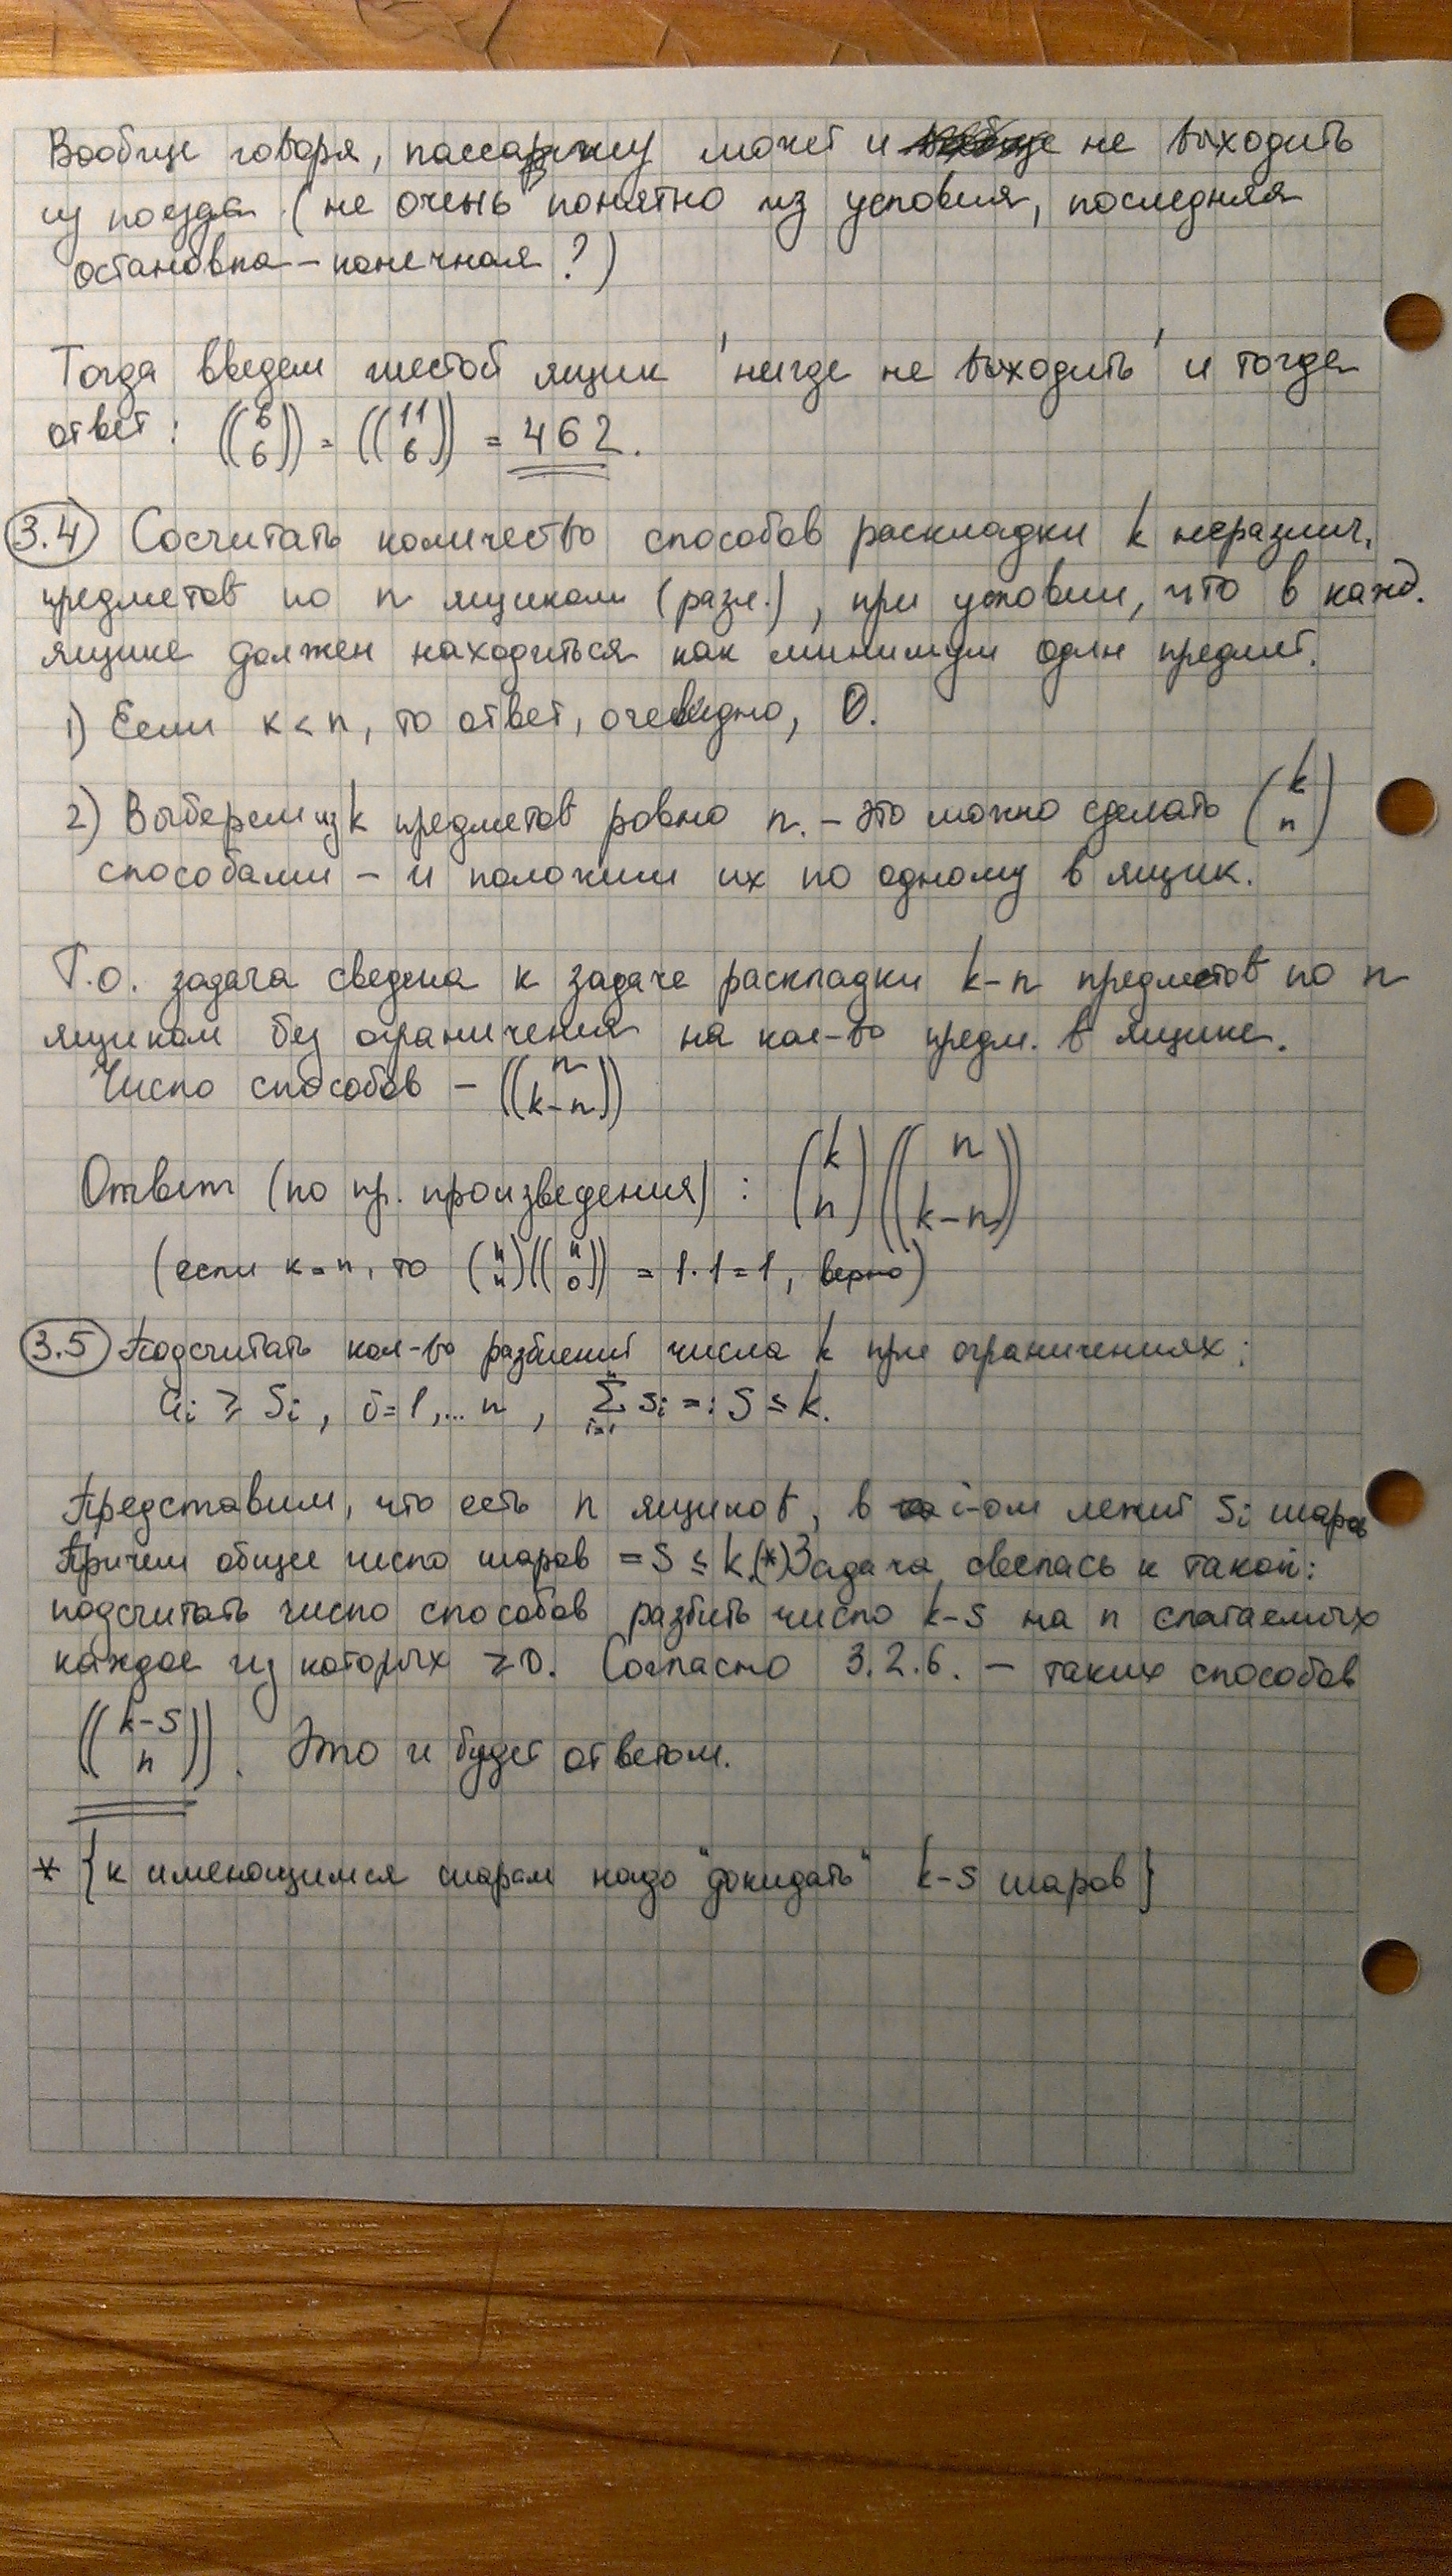 Вообще говоря, пассажиру может и не выходить
из поезда (не очень понятно из условия, последняя
остановка – конечная?)
Тогда введем шестой ящик 'нигде не выходить' и тогда
ответ: ((6 6)) = ((11 6)) = 462.
3.4 Сосчитать количество способов раскладки k неразлич.
предметов по n ящикам (разл.), при условии, что в кажд.
ящике должен находиться как минимум один предмет.
1) Если k < n, то ответ, очевидно, 0.
2) Выберем из k предметов ровно n. – это можно сделать (k n)
способами – и положим их по одному в ящик.
Т.о. задача сведена к задаче раскладки k-n предметов по n
ящикам без ограничения на кол-во предм. в ящике.
Число способов – ((n k-n))
Ответ (по пр. произведения): (k n)((n k-n))
(если k=n, то (n n)((n 0)) = 1·1=1, верно)
3.5 Подсчитать кол-во разбиений числа k при ограничениях:
a_i ≥ S_i, i=1,...n, ∑_{i=1}^{n} S_i =: S ≤ k.
Представим, что есть n ящиков, в i-ом лежит S_i шаров
Причем общее число шаров = S ≤ k.(*) Задача свелась к такой:
подсчитать число способов разбить число k-S на n слагаемых
каждое из которых ≥0. Согласно 3.2.6. – таких способов
((k-S n)). Это и будет ответом.
* {к имеющимся шарам надо "докидать" k-S шаров}